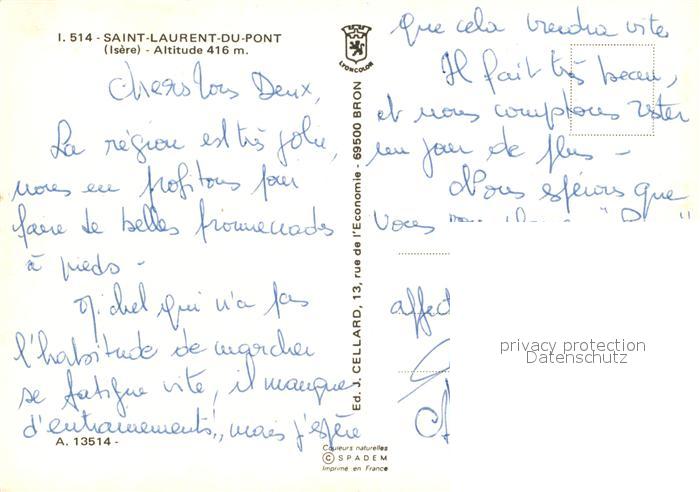 I. 514 - SAINT-LAURENT-DU-PONT
(Isère) - Altitude 416 m.
LYONCOLOR
Chers tous Deux,
La région est très jolie,
nous en profitons pour
faire de belles promenades
à pieds -
Michel qui n'a pas
l'habitude de marcher
se fatigue vite, il manque
d'entrainements!, mais j'espère
A. 13514 -
Ed. J. CELLARD, 13, rue de l'Economie - 69500 BRON
Couleurs naturelles
© SPADEM
Imprimé en France
que cela viendra vite
Il fait très beau,
et nous comptons rester
un jour de plus -
Nous espérons que
Vous
affect
privacy protection
Datenschutz